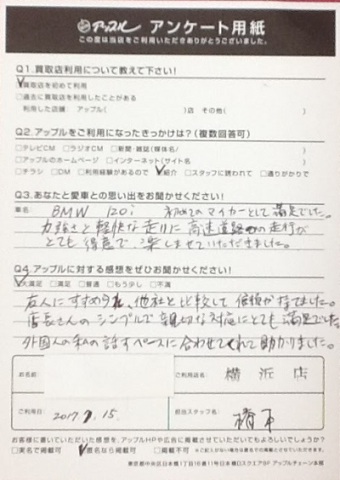 アップル アンケート用紙
この度は当店をご利用いただきありがとうございました。
Q1.買取店利用について教えて下さい!
買取店を初めて利用
□過去に買取店を利用したことがある
利用した店舗: アップル( )店 その他( )
Q2.アップルをご利用になったきっかけは?(複数回答可)
□テレビCM □ラジオCM □新聞・雑誌(媒体名/ )
□アップルのホームページ □インターネット(サイト名/ )
□チラシ □DM □利用経験があるので 紹介 □スタッフに誘われて □通りがかりで
Q3.あなたと愛車との思い出をお聞かせください!
車名 BMW 120i 初めてのマイカーとして満足でした。
力強さと軽快な走りに高速道路の走行が
とても得意で、楽しませていただきました。
Q4.アップルに対する感想をぜひお聞かせください!
大満足 □満足 □普通 □もう少し □不満
友人にすすめられ、他社と比較して値段がすてでした。
店長さんのシンプルで親切な対応にとても満足でした
外国人の私の話すペースに合わせてくれて助かりました。
お名前
ご利用店名: 横浜店
ご利用日: 2017.9.15
担当スタッフ名: 橋本
お客様に書いていただいた感想を、アップルHPや広告に掲載させていただいてもよろしいでしょうか?
□実名で掲載可 匿名なら掲載可 □掲載不可
東京都中央区日本橋1丁目16番11号日本橋Dスクエア9F アップルチェーン本部